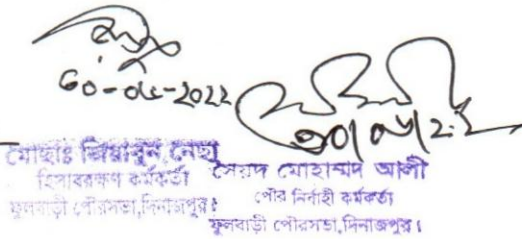 ৩০-০৬-২০২২
৩০/০৬/২২
মোছাঃ জিয়াবুন নেছা
হিসাবরক্ষণ কর্মকর্তা
ফুলবাড়ী পৌরসভা,দিনাজপুর।
সৈয়দ মোহাম্মদ আলী
পৌর নির্বাহী কর্মকর্তা
ফুলবাড়ী পৌরসভা,দিনাজপুর।